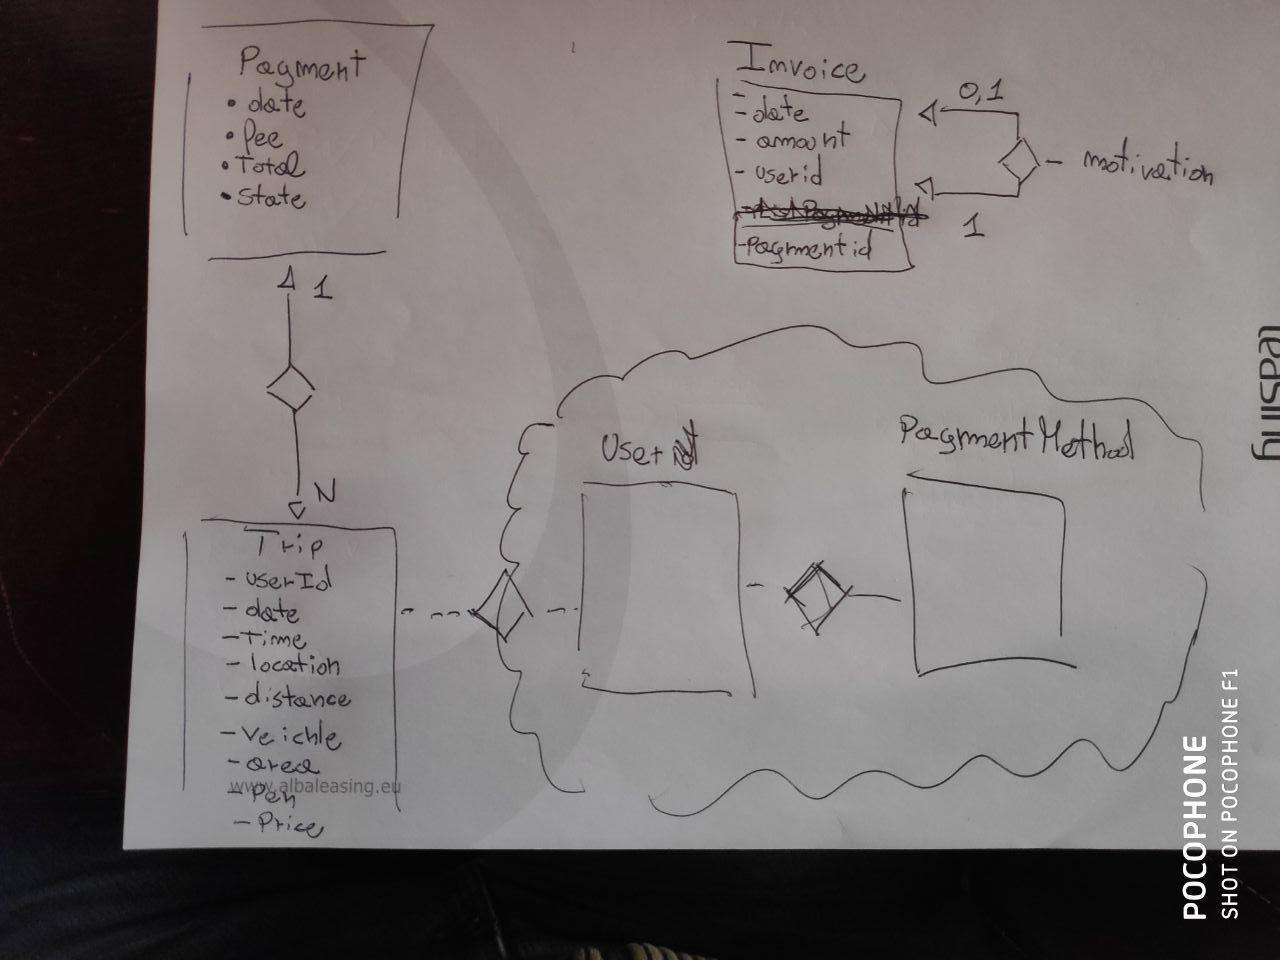 Payment
• date
• fee
• Total
• State
1
N
Trip
- userId
- date
- Time
- location
- distance
- veichle
- area
www.albaleasing.eu
- Pen
- Price
Invoice
- date
- amount
- userid
- Payment id
0,1
1
- motivation
User
Payment Method
leasing
POCOPHONE
SHOT ON POCOPHONE F1